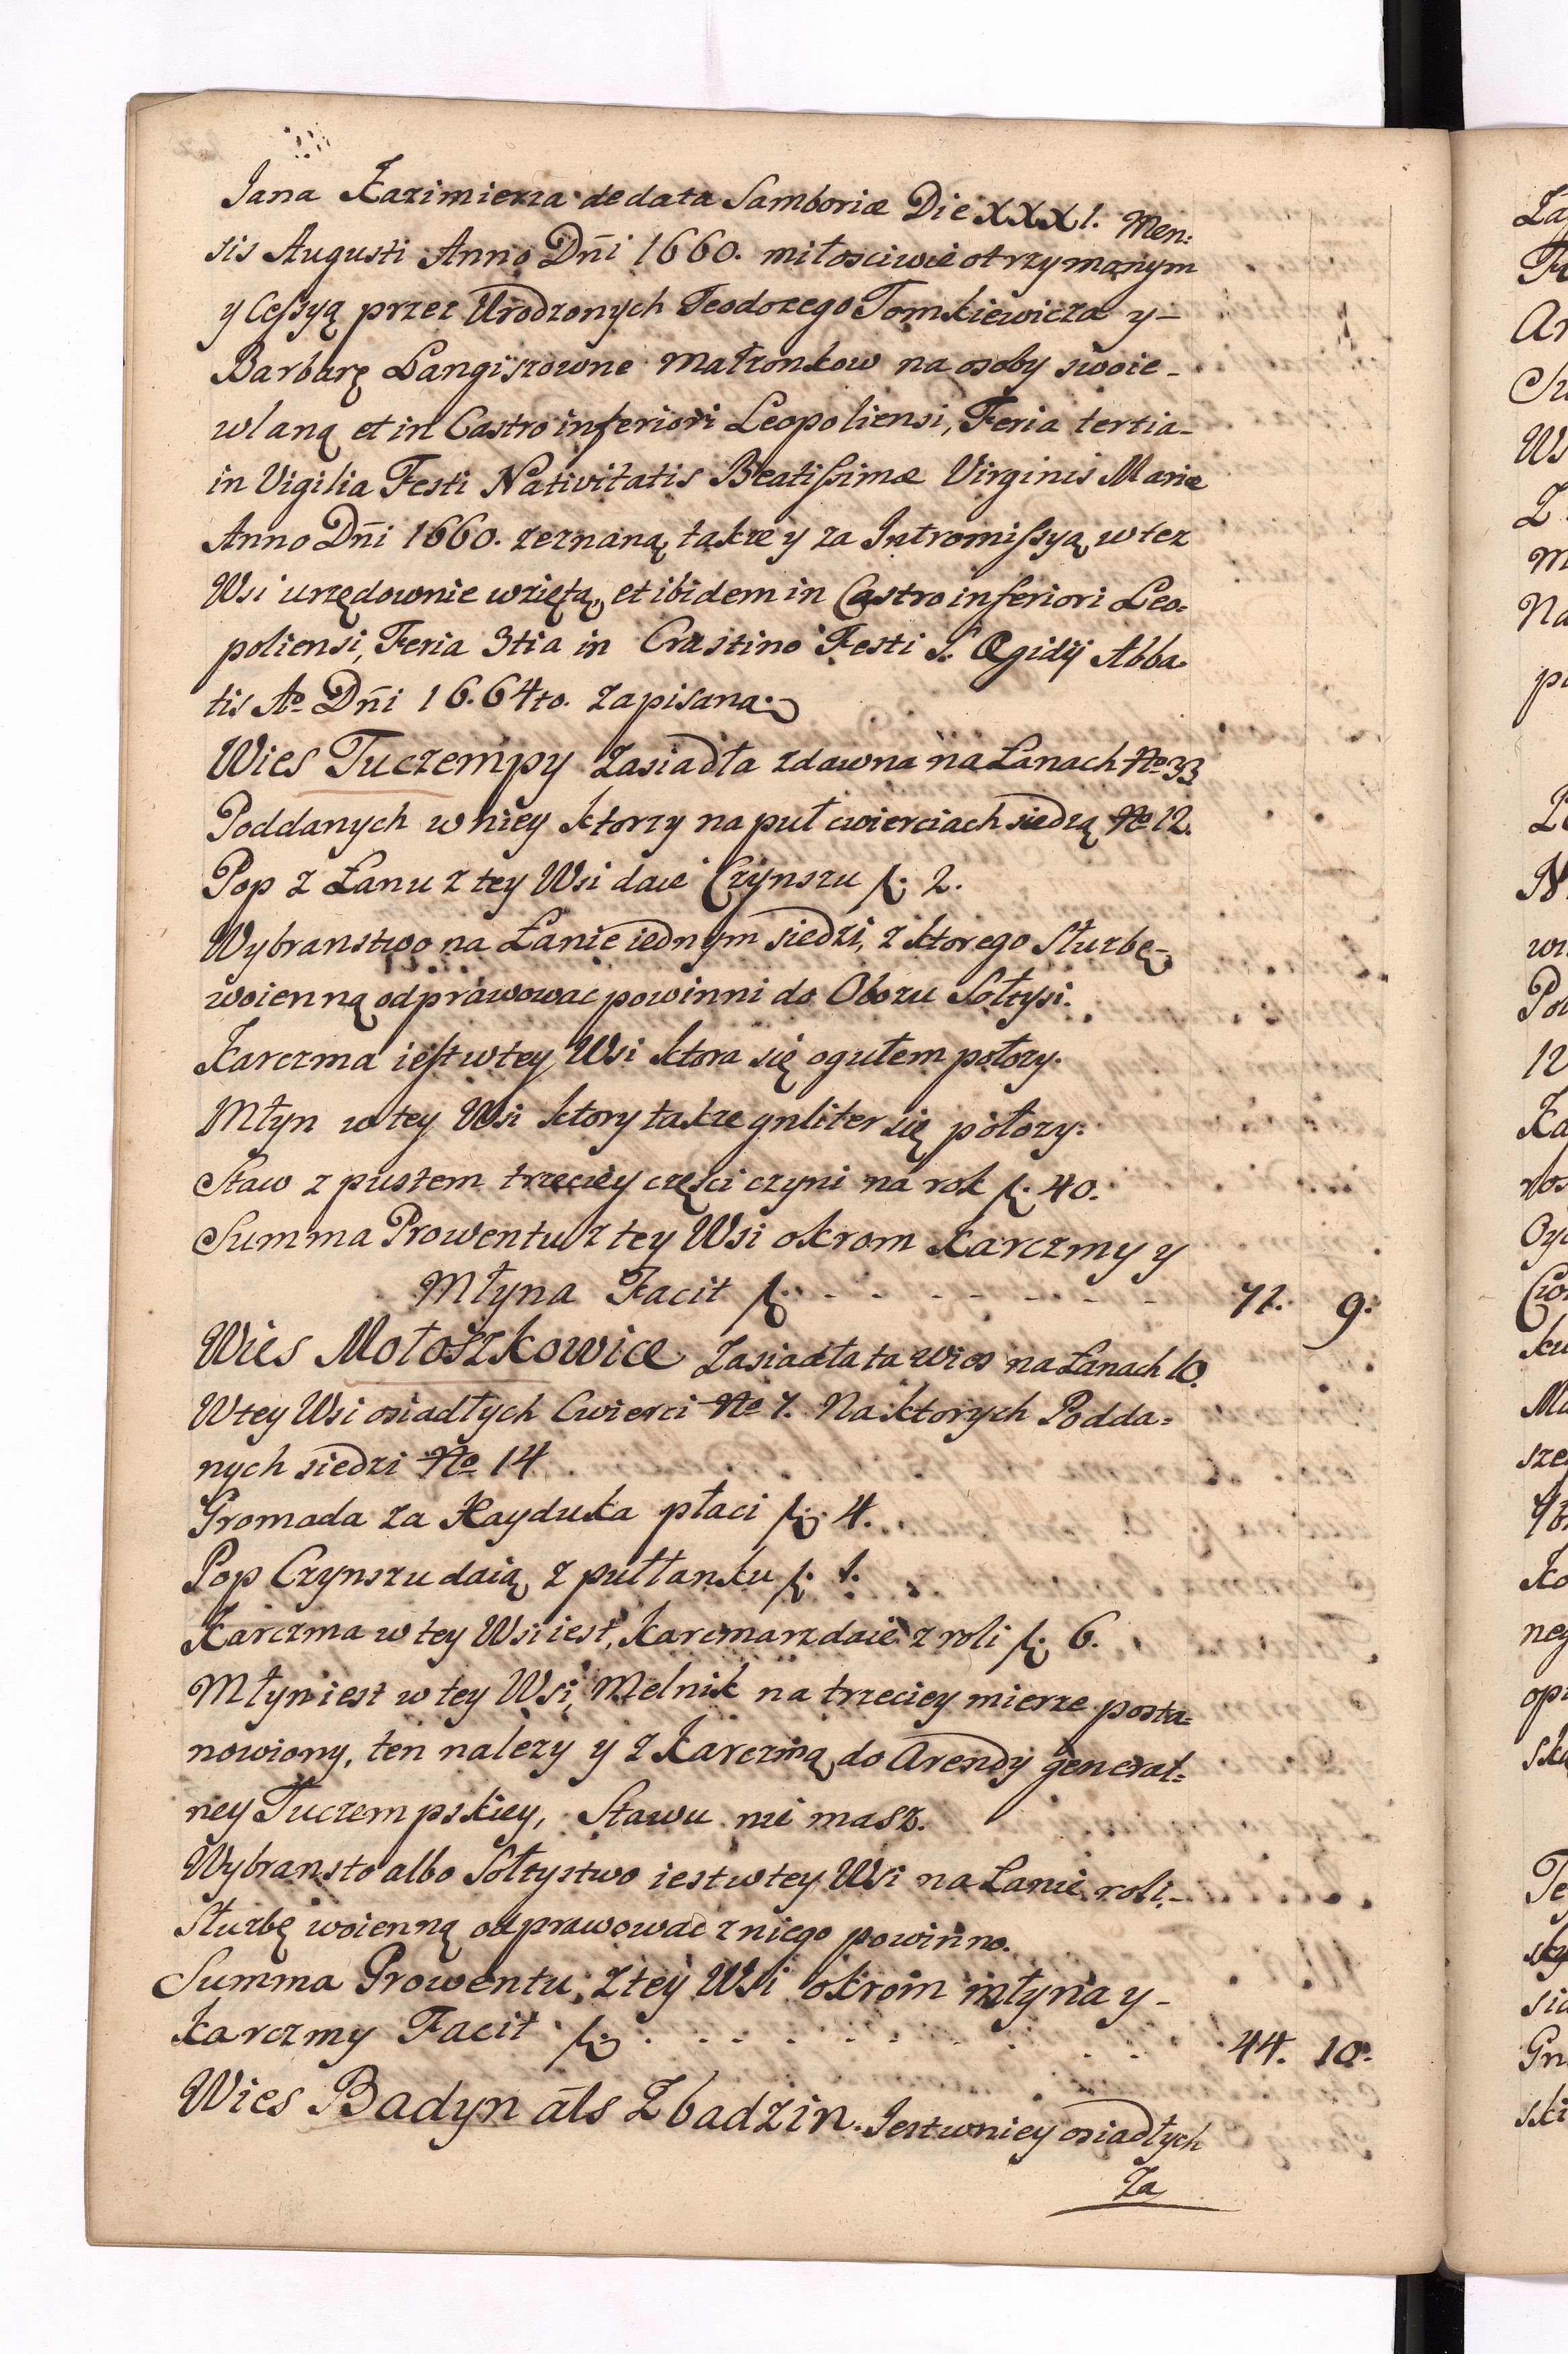 Jana Kazimierza de data Samboriæ Die XXXI. Men:
sis Augusti Anno Dñi 1660. miłosciwie otrzymanym
y Cessyą przez Urodzonych Teodorego Tomkiewicza y -
Barbarę Langiszowne Małzonkow na osoby swoie -
wlaną et in Castro inferiori Leopoliensi, Feria tertia -
in Vigilia Festi Nativitatis Beatissimæ Virginis Mariæ
Anno Dñi 1660. zeznaną, także y za Intromissyą, w tez
Wsi urzędownie wziętą, et ibidem in Castro inferiori Leo:
poliensi, Feria 3tia in Crastino Festi S. Ægidij Abba:
tis Aº Dñi 16.64to. zapisana.
Wies Tuczempy Zasiadła zdawna na Łanach Nº 33
Poddanych w niey ktorzy na puł cwierciach siedzą Nº 12.
Pop z Łanu z tey Wsi daie Czynszu f. 2.
Wybranstwo na Łanie iednym siedzi, z ktorego Służbę -
woienną odprawowac powinni do Obozu Sołtysi.
Karczma iest w tey Wsi ktora się ogułem położy.
Młyn w tey Wsi ktory także gnliter się położy.
Staw z pustem trzeciey części czyni na rok f. 40.
Summa Prowentu z tey Wsi okrom Karczmy y
Młyna Facit f. - - - - - - - 71. 9.
Wies Mołoszkowice Zasiadła ta wies na Łanach 10.
W tey Wsi osiadłych Cwierci Nº 7. Na ktorych Podda:
nych siedzi Nº 14
Gromada za Hayduka płaci f. 4.
Pop Czynszu daią z pułłanku f. 1.
Karczma w tey Wsi iest, Karcmarz daie z roli f. 6.
Młyn iest w tey Wsi, Melnik na trzeciey mierze posta:
nowiony, ten nalezy y z Karczmą do Arendy generał:
ney Tuczempskiey, Stawu nie masz.
Wybransto albo Sołtystwo iest w tey Wsi na Łanie roli, -
Służbę woienną odprawowac z niego powinno.
Summa Prowentu, z tey Wsi okrom młyna y -
Karczmy Facit f. - - - - - - - 44. 10.
Wies Badyn als Zbadzin. Iest w niey osiadłych
Za